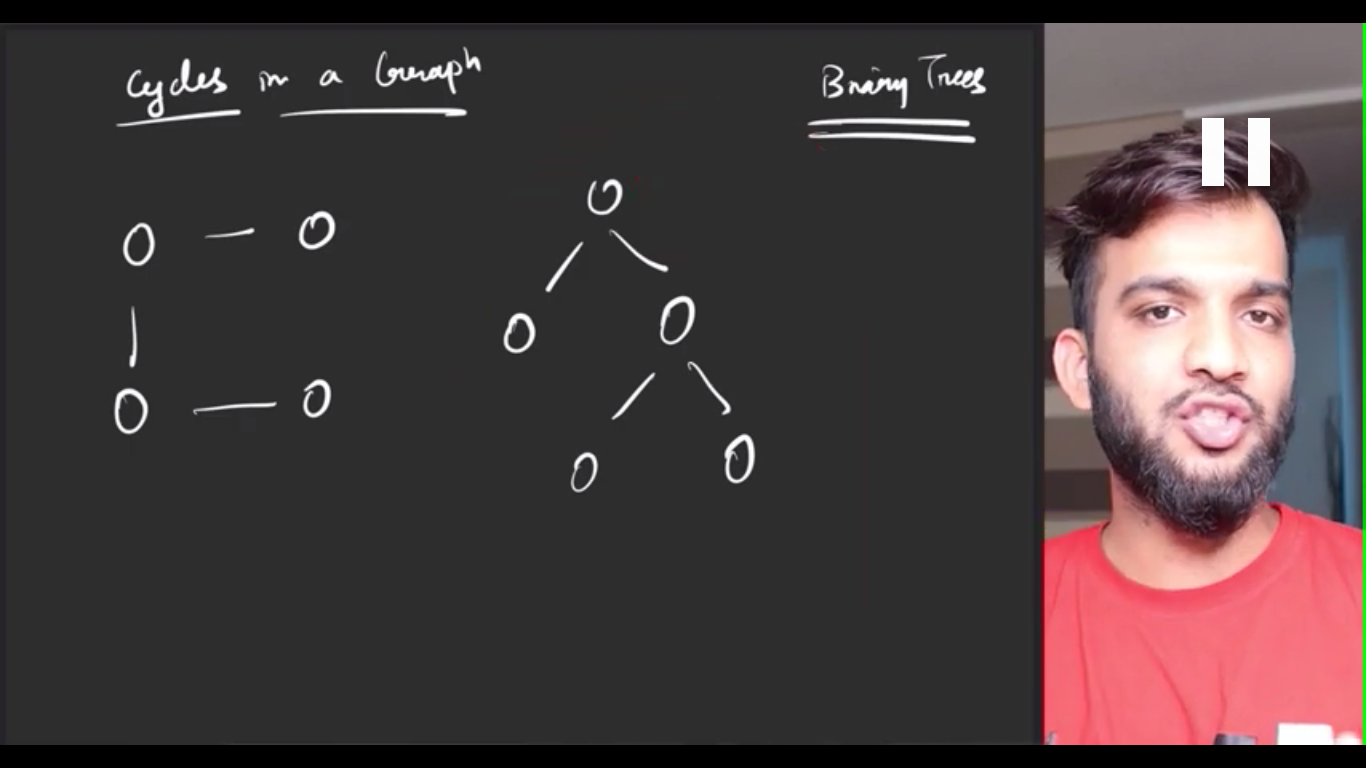 Cycles in a Graph
Binary Trees